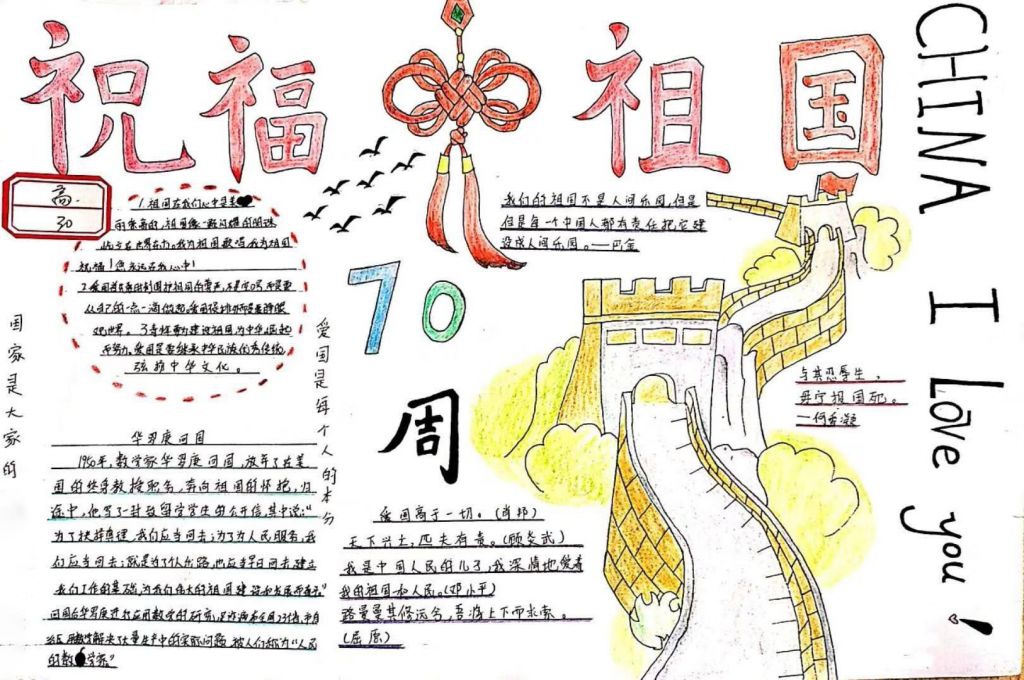 祝福祖国
CHINA I Love you!
高一
30
1.祖国在我们心中是美
的亲爱的,祖国像一颗闪耀的明珠
屹立在世界东方,我为祖国歌唱,我为祖国
祝福!您永远在我心中!
从自己的一点一滴做起
观世界。3.寻梦
而努力。爱国是要继承中华民族优秀传统
弘扬中华文化。
国家是大家的
爱国是每个人的本分
70
周
我们的祖国不是人间乐园,但是
但是每一个中国人都有责任把它建
设成人间乐园。——巴金
与其忍辱生,
毋宁报国死。
—何香凝
华罗庚回国
1950年,数学家华罗庚回国,放弃了在美
国的终身教授职务,奔向祖国的怀抱,归
途中,他写了一封致留学学生的公开信,其中说:"
为了抉择真理,我们应当回去;为了为人民服务,我
们应当回去;就是为了个人出路,也应当早日回去,建立
我们工作的基础,为我们伟大的祖国建设和发展而奋斗"
回国后华罗庚进行应用数学的研究,足迹遍布全国23个省、市、自
治区,用数学解决了大量生产中的实际问题,被人们称为"人民
的数学家"
爱国高于一切。(肖邦)
天下兴亡,匹夫有责。(顾炎武)
我是中国人民的儿子,我深情地爱着
我的祖国和人民。(邓小平)
路曼曼其修远兮,吾将上下而求索。
(屈原)